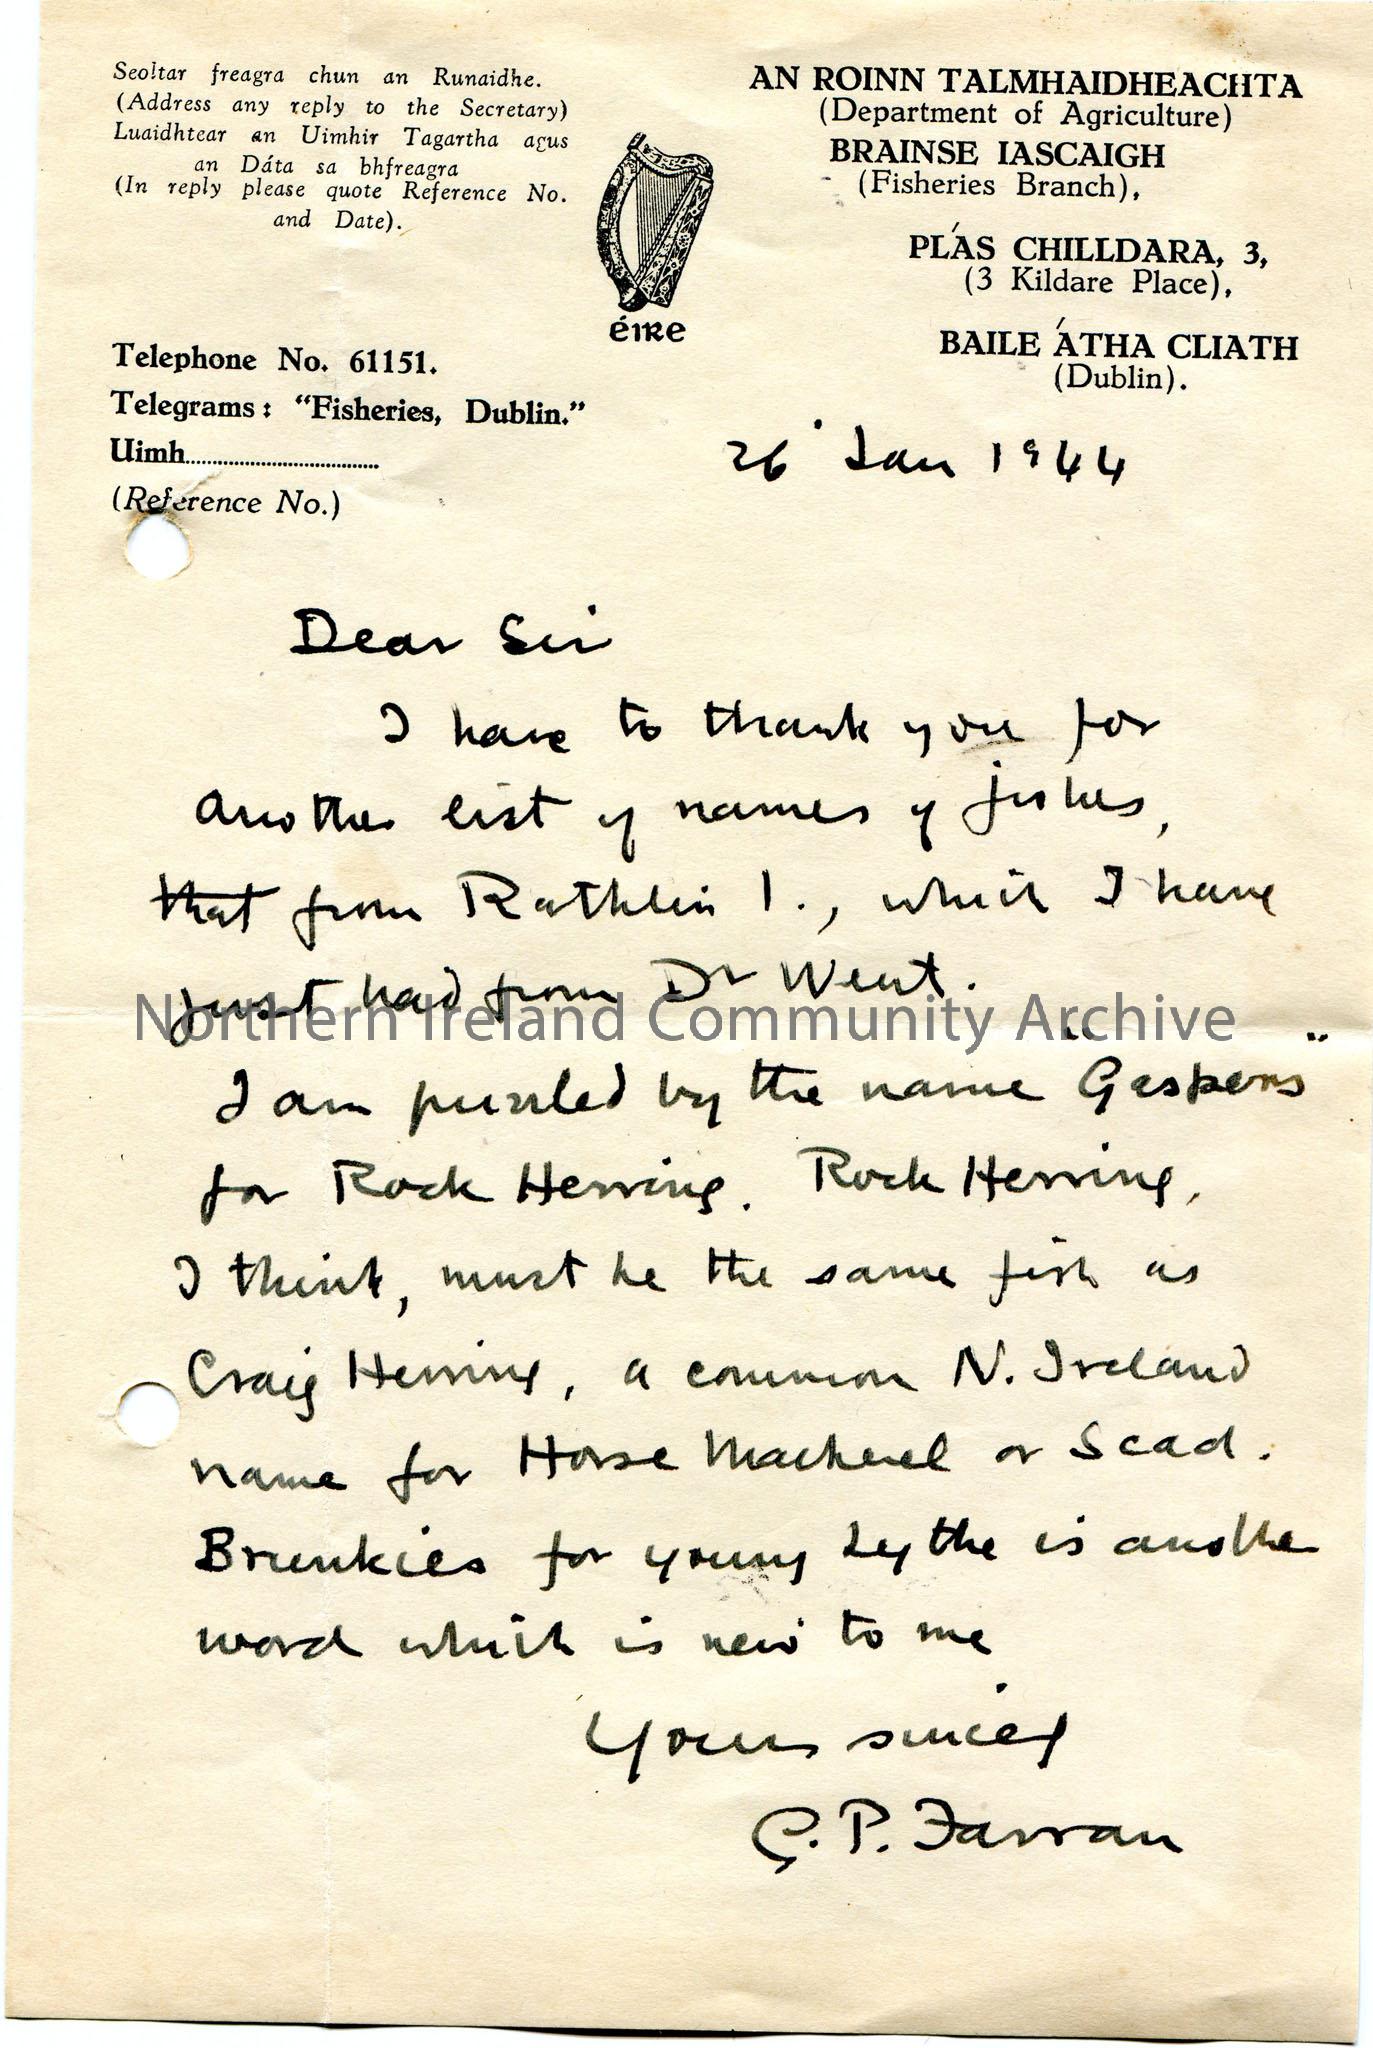 Seoltar freagra chun an Runaidhe.
(Address any reply to the Secretary)
Luaidhtear an Uimhir Tagartha agus
an Dáta sa bhfreagra
(In reply please quote Reference No.
and Date).
Telephone No. 61151.
Telegrams: "Fisheries, Dublin."
Uimh.................................
(Reference No.)
éire
AN ROINN TALMHAIDHEACHTA
(Department of Agriculture)
BRAINSE IASCAIGH
(Fisheries Branch),
PLÁS CHILLDARA, 3,
(3 Kildare Place),
BAILE ÁTHA CLIATH
(Dublin).
26 Jan 1944
Dear Sir
I have to thank you for
another list of names of fishes,
that from Rathlin I., which I have
just had from Dr Went.
Northern Ireland Community Archive
I am puzzled by the name "Gaspers"
for Rock Herring. Rock Herring,
I think, must be the same fish as
Craig Herring, a common N. Ireland
name for Horse Mackerel or Scad.
Brunkies for young Lythe is another
word which is new to me
Yours sincerely
G. P. Farran